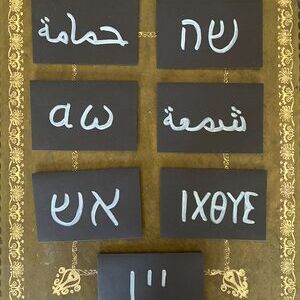 حمامة
שה
αω
شمعة
אש
ΙΧΘΥΣ
יין